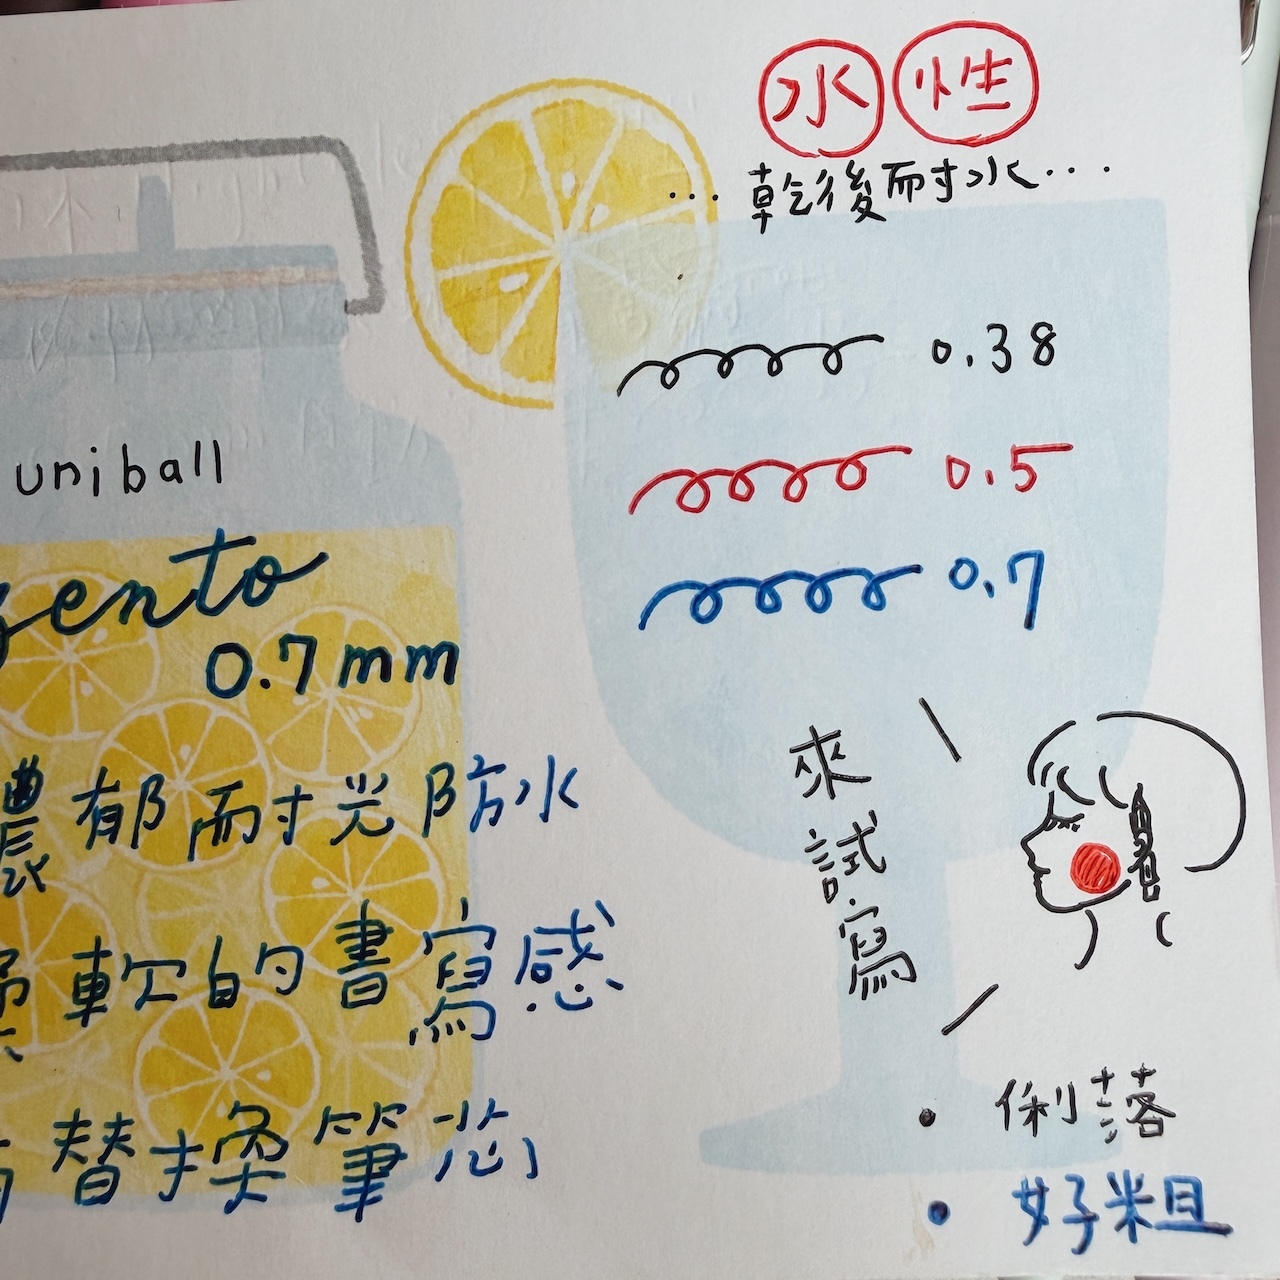 水性
...乾後耐水...
0.38
0.5
0.7
uniball
zento
0.7mm
濃郁耐光防水
軟的書寫感
替換筆芯
來試寫
• 俐落
• 好粗